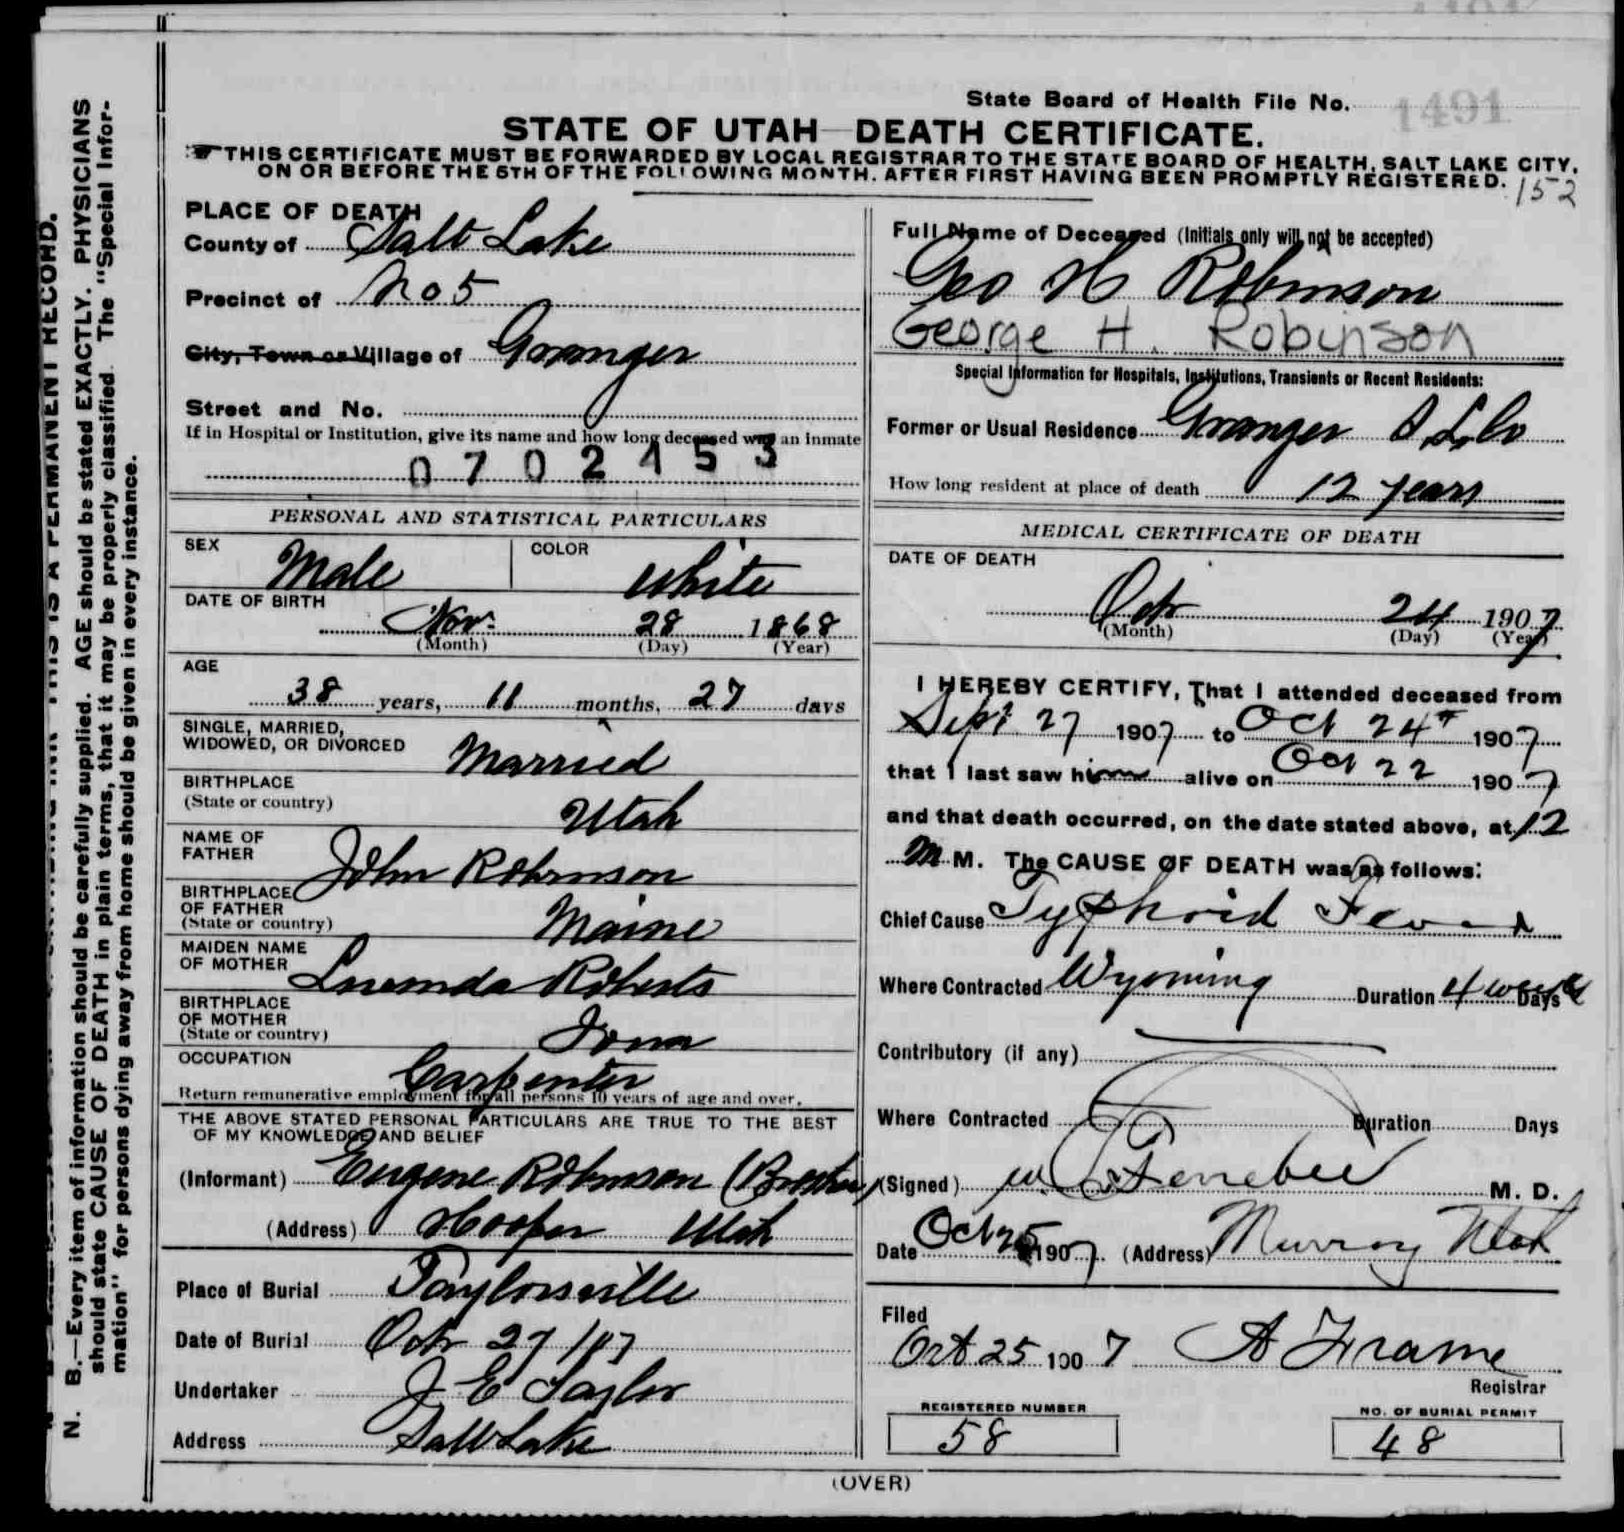 State Board of Health File No. 1491
STATE OF UTAH—DEATH CERTIFICATE.
THIS CERTIFICATE MUST BE FORWARDED BY LOCAL REGISTRAR TO THE STATE BOARD OF HEALTH, SALT LAKE CITY,
ON OR BEFORE THE 5TH OF THE FOLLOWING MONTH, AFTER FIRST HAVING BEEN PROMPTLY REGISTERED.
152
PLACE OF DEATH
County of Salt Lake
Precinct of No 5
City, Town or Village of Granger
Street and No.
If in Hospital or Institution, give its name and how long deceased was an inmate
0702453
PERSONAL AND STATISTICAL PARTICULARS
SEX Male COLOR White
DATE OF BIRTH
Nov. 28 1868
(Month) (Day) (Year)
AGE
38 years, 11 months, 27 days
SINGLE, MARRIED,
WIDOWED, OR DIVORCED Married
BIRTHPLACE
(State or country) Utah
NAME OF
FATHER John Robinson
BIRTHPLACE
OF FATHER
(State or country) Maine
MAIDEN NAME
OF MOTHER Lucinda Roberts
BIRTHPLACE
OF MOTHER
(State or country) Iowa
OCCUPATION
Carpenter
Return remunerative employment for all persons 10 years of age and over.
THE ABOVE STATED PERSONAL PARTICULARS ARE TRUE TO THE BEST
OF MY KNOWLEDGE AND BELIEF
(Informant) Eugene Robinson (Brother)
(Address) Hooper Utah
Place of Burial Taylorsville
Date of Burial Oct 27 1907
Undertaker J E Taylor
Address Salt Lake
Full Name of Deceased (Initials only will not be accepted)
Geo H Robinson
George H. Robinson
Special Information for Hospitals, Institutions, Transients or Recent Residents:
Former or Usual Residence Granger S. L. Co
How long resident at place of death 12 years
MEDICAL CERTIFICATE OF DEATH
DATE OF DEATH
Oct 24 1907
(Month) (Day) (Year)
I HEREBY CERTIFY, That I attended deceased from
Sept 27 1907 to Oct 24 1907
that I last saw him alive on Oct 22 1907
and that death occurred, on the date stated above, at 12
M M. The CAUSE OF DEATH was as follows:
Chief Cause Typhoid Fever
Where Contracted Wyoming Duration 4 weeks Days
Contributory (if any)
Where Contracted Duration Days
(Signed) Ferrebee M. D.
Date Oct 25 1907 (Address) Murray Utah
Filed
Oct 25 1907 A Frame
Registrar
REGISTERED NUMBER
58
NO. OF BURIAL PERMIT
48
(OVER)
THIS IS A PERMANENT RECORD.
N. B.—Every item of information should be carefully supplied. AGE should be stated EXACTLY. PHYSICIANS
should state CAUSE OF DEATH in plain terms, that it may be properly classified. The "Special Infor-
mation" for persons dying away from home should be given in every instance.